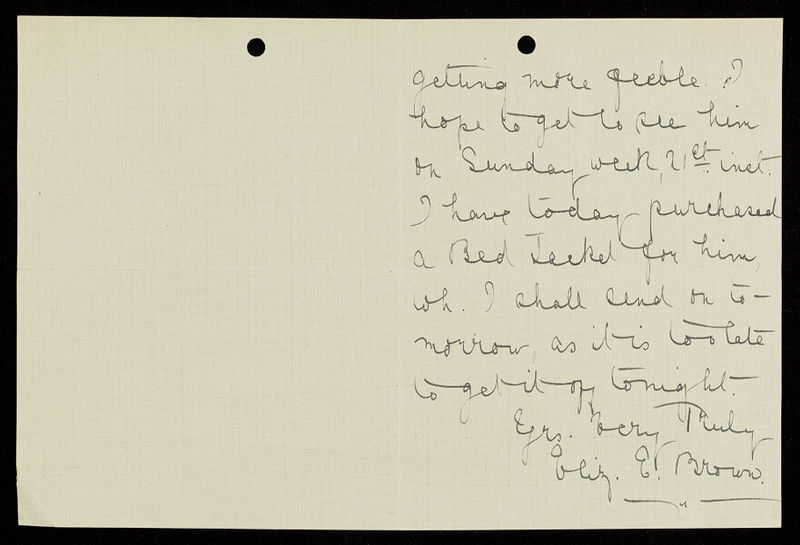 getting more feeble. I
hope to get to see him
on Sunday week, 21st. inst.
I have today purchased
a Bed Jacket for him,
wh. I shall send on to-
morrow, as it is too late
to get it off tonight.
Yrs. Very Truly
Eliz. E. Brown.